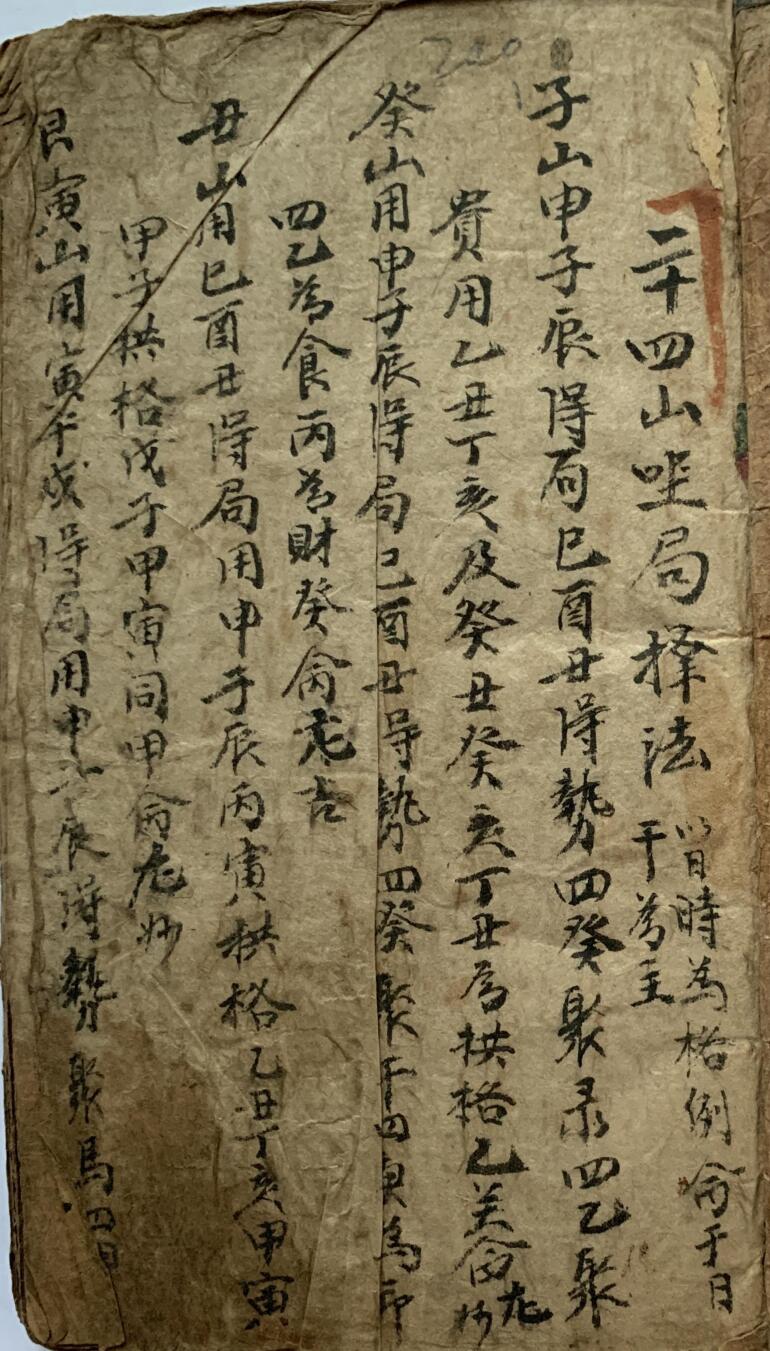 二十四山坐局择法 以日時為格例俞于日干為主
子山申子辰得局巳酉丑得勢四癸聚录四乙聚
貴用乙丑丁亥及癸丑癸亥丁丑為拱格乙美俞尤妙
癸山用申子辰得局巳酉丑得勢四癸聚干四庚為印
四乙為食丙為財癸俞尤吉
丑山用巳酉丑得局用申子辰丙寅拱格乙丑丁亥甲寅
甲子拱格戊子甲寅同甲俞尤妙
艮寅山用寅午戌得局用申子辰得勢聚馬四